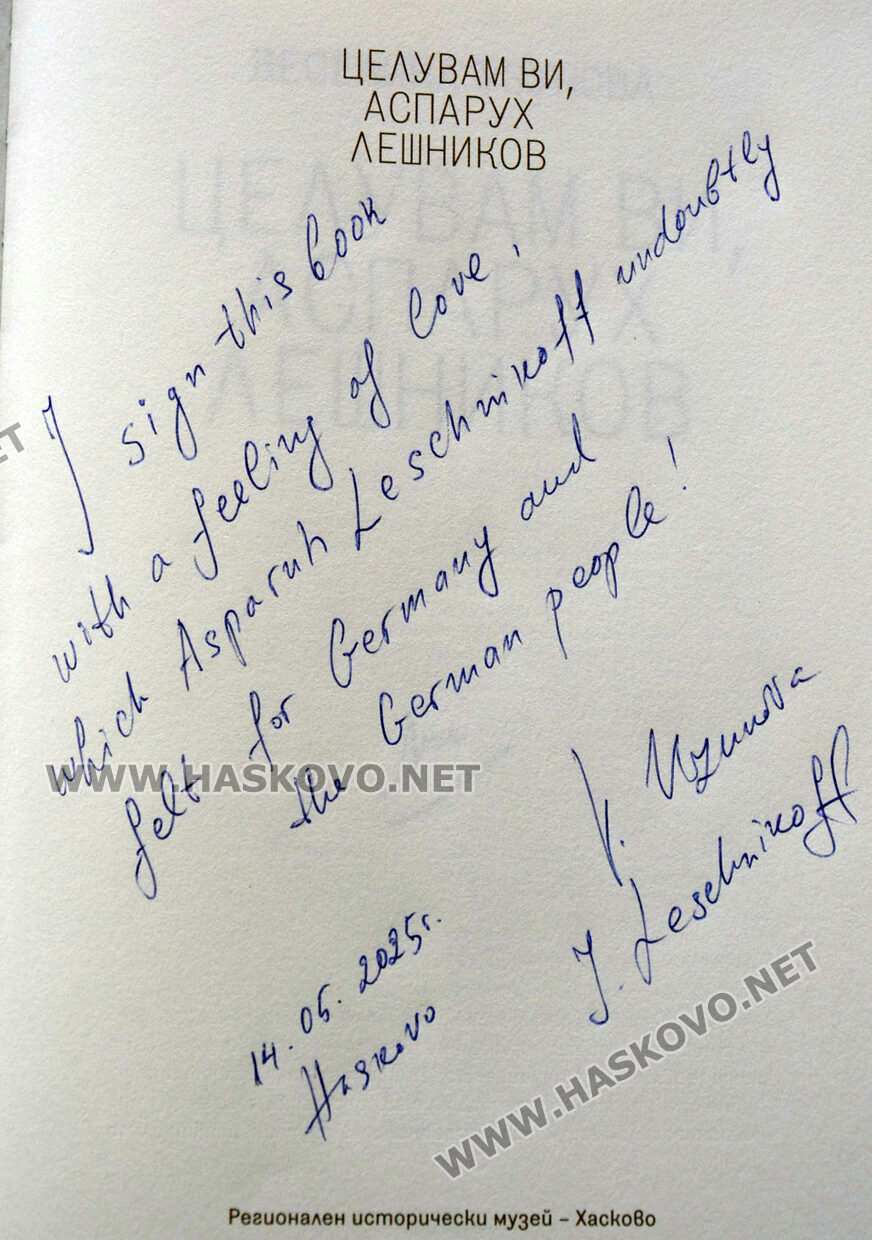 ЦЕЛУВАМ ВИ,
АСПАРУХ
ЛЕШНИКОВ
I sign this book
with a feeling of love,
which Asparuh Leschnikoff undoubtly
felt for Germany and
the German people!
V. Uzunova
J. Leschnikoff
14.05.2025г.
Haskovo
.NET
WWW.HASKOVO.NET
WWW.HASKOVO.NET
Регионален исторически музей – Хасково